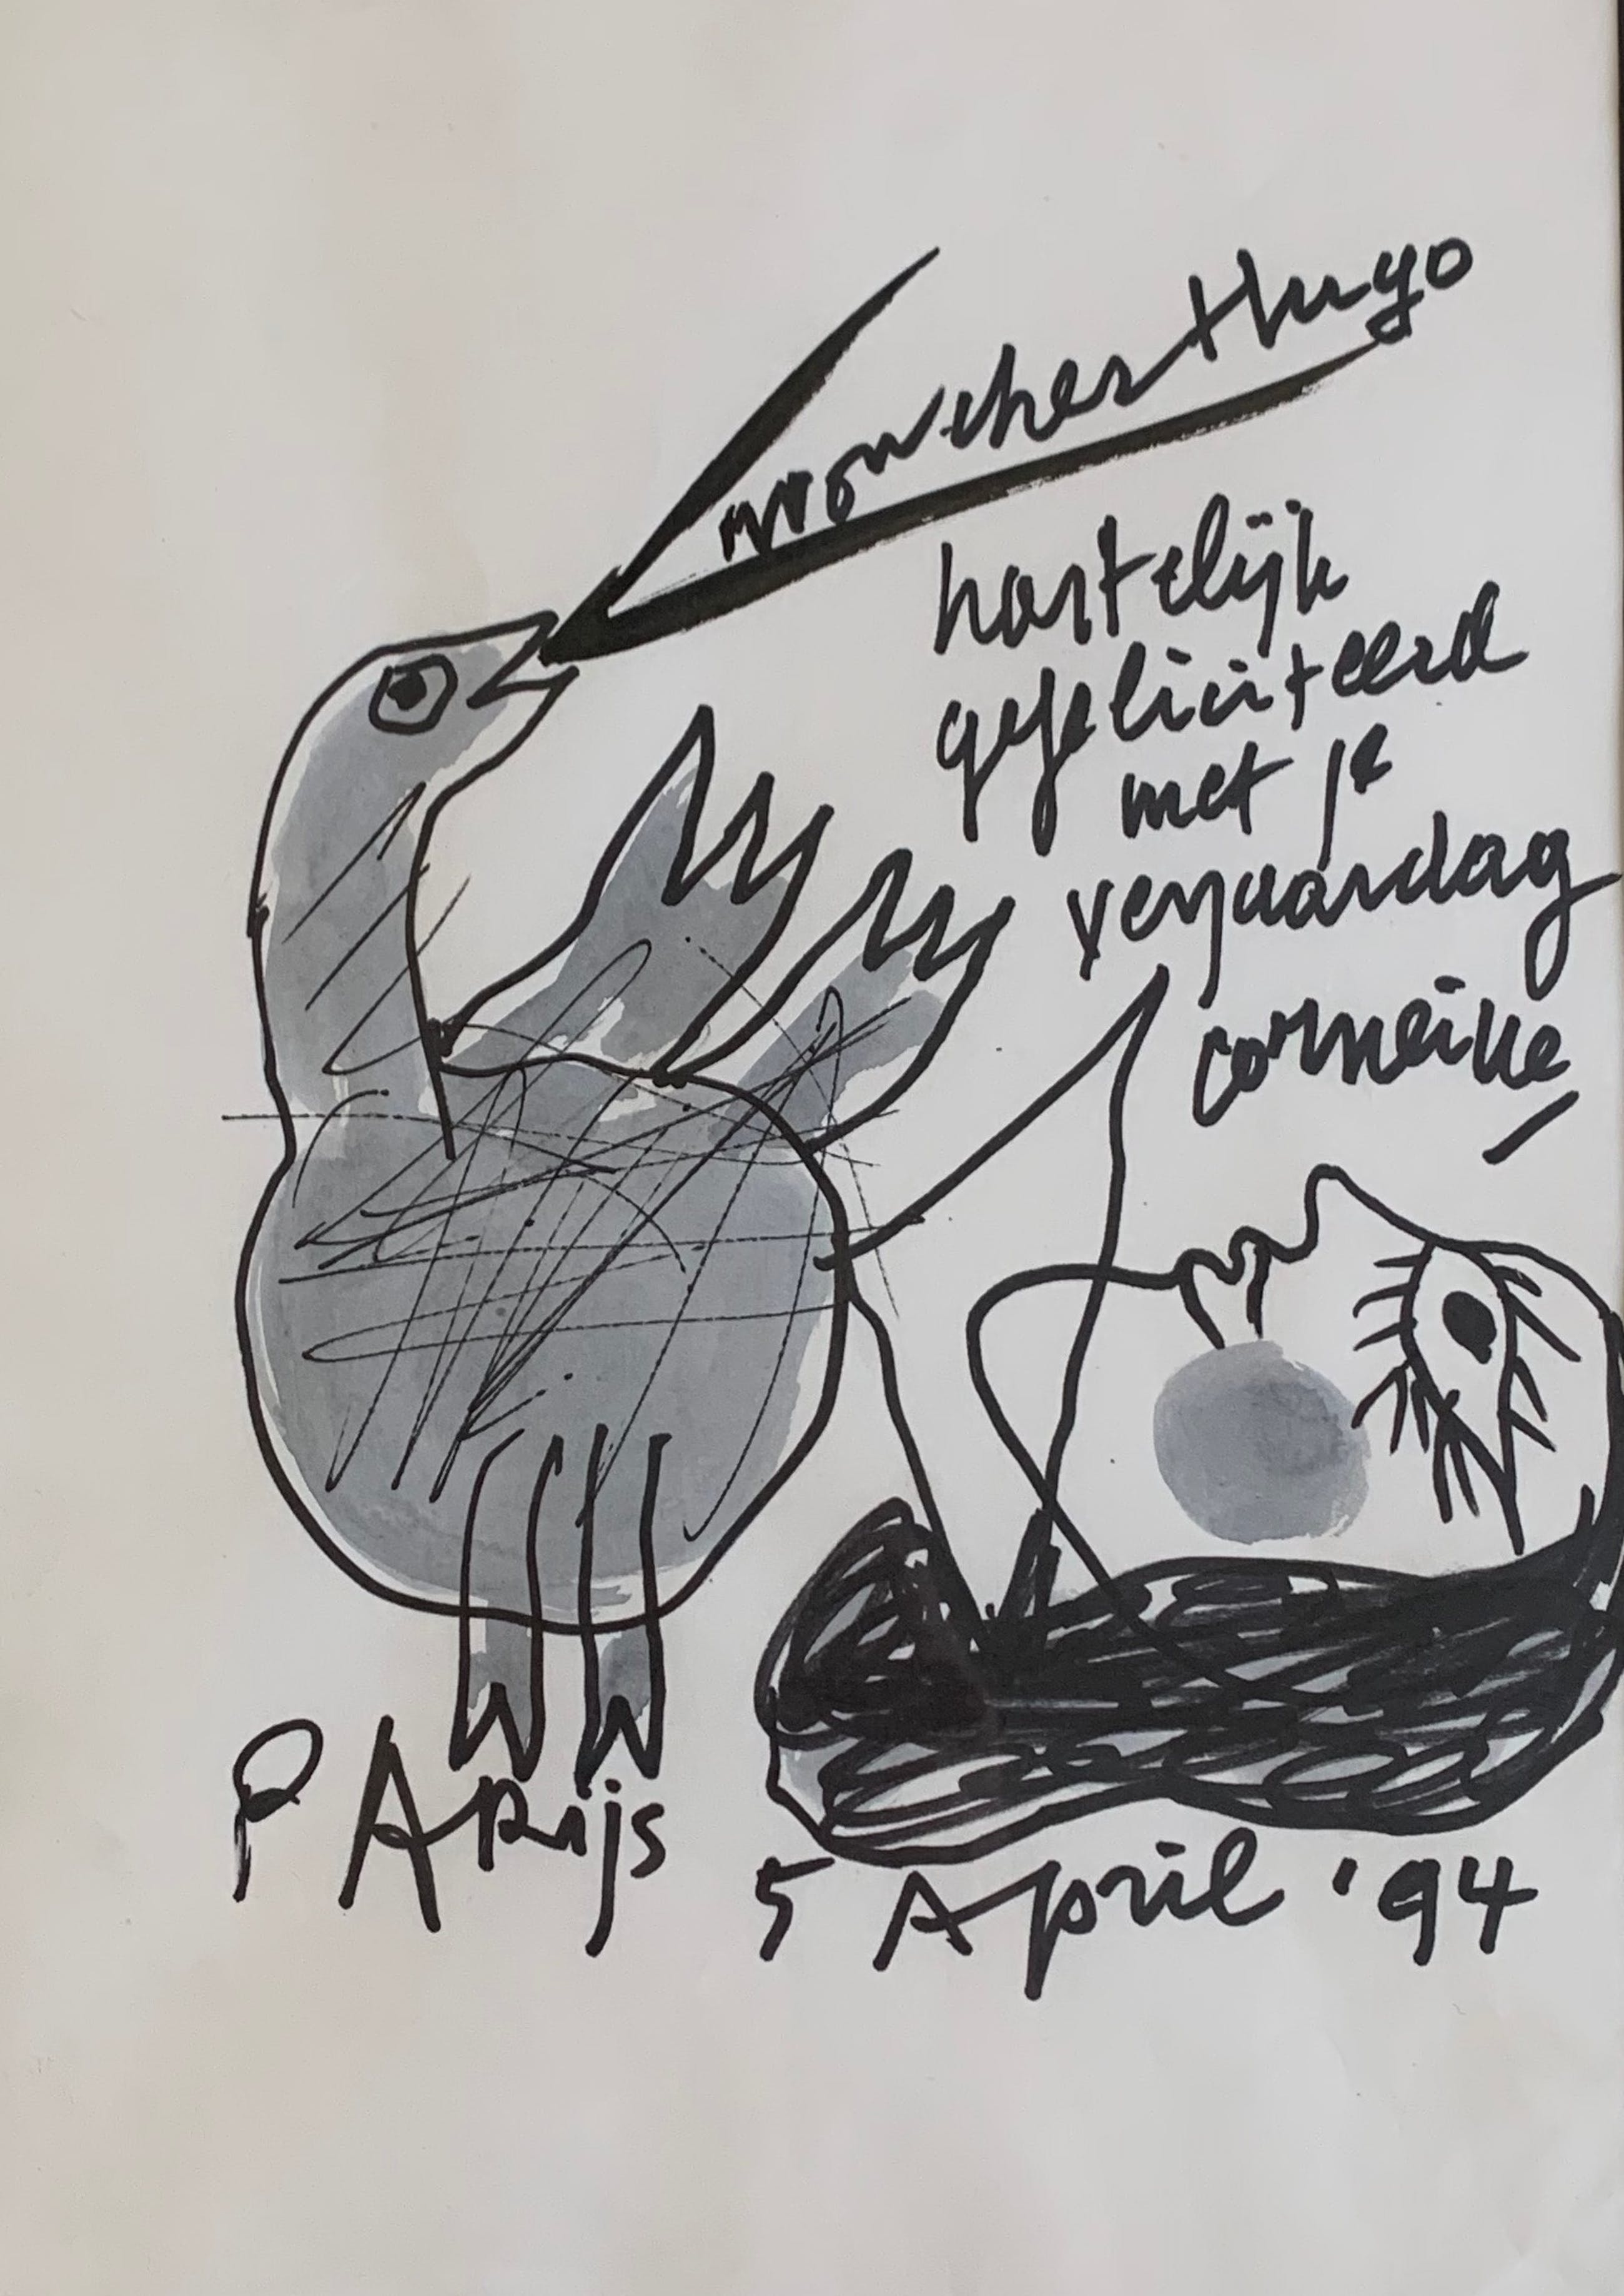 mon cher Hugo
hartelijk
gefeliciteerd
met je
verjaardag
corneille
PARijs
5 April '94